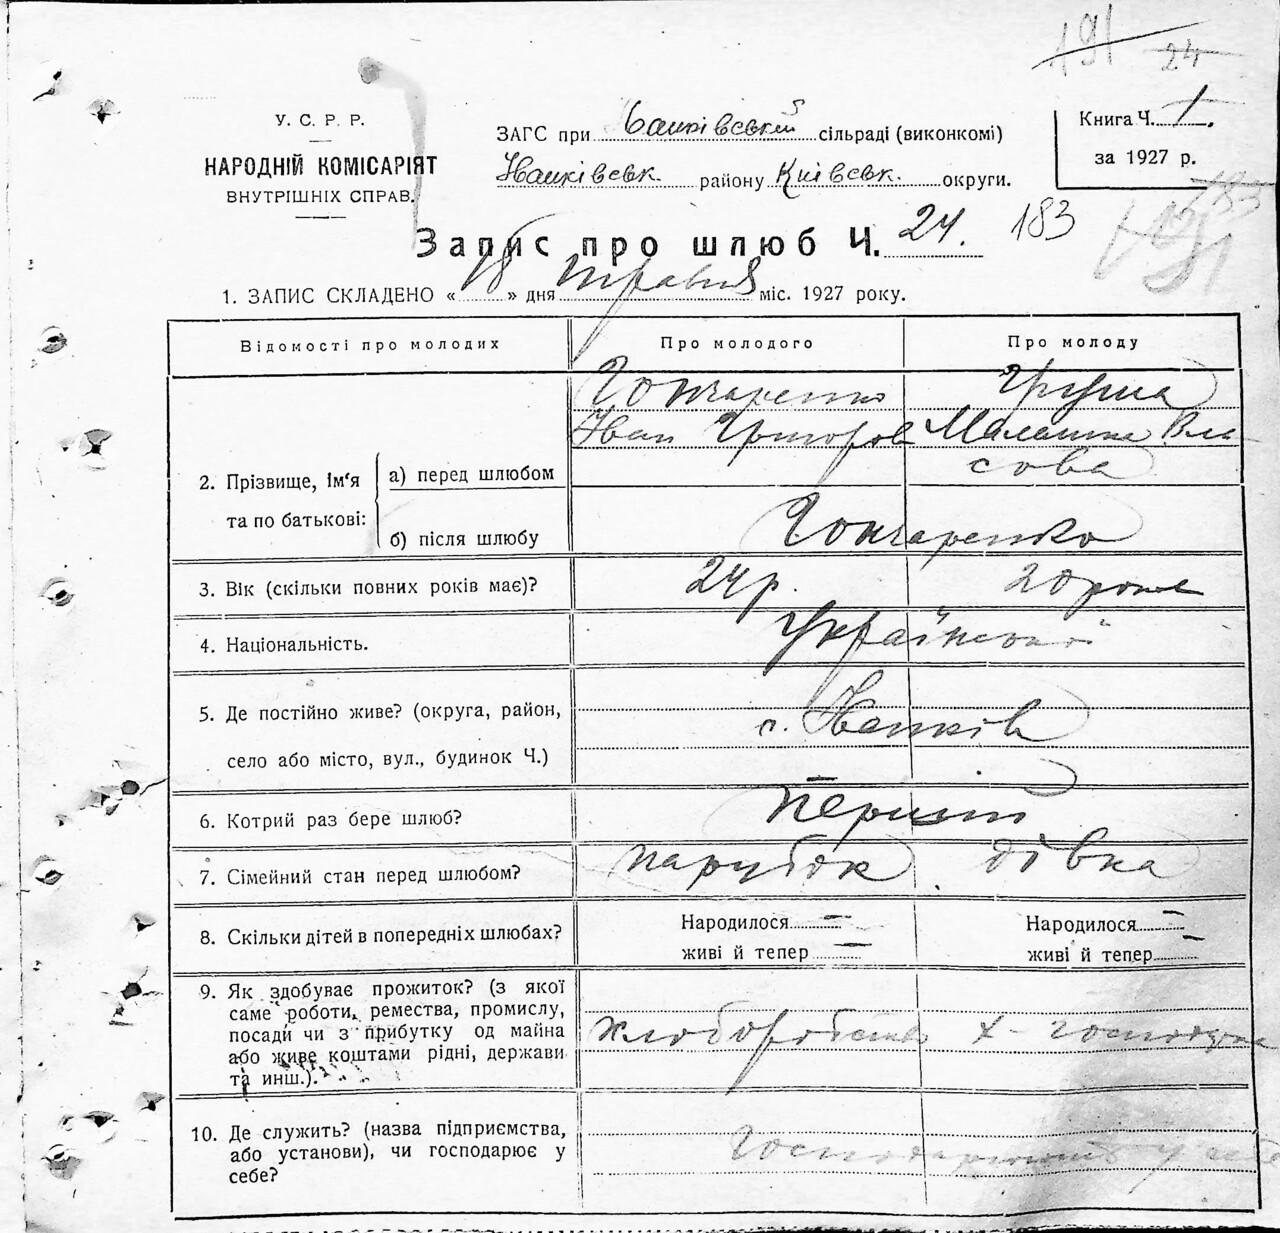 191 24
У. С. Р. Р.
НАРОДНІЙ КОМІСАРІЯТ
ВНУТРІШНІХ СПРАВ.
ЗАГС при сільраді (виконкомі)
району Київськ. округи.
Книга Ч. 1.
за 1927 р.
Запис про шлюб Ч. 24. 183
1. ЗАПИС СКЛАДЕНО « 18 » дня травня міс. 1927 року.
Відомості про молодих Про молодого Про молоду
2. Прізвище, ім'я та по батькові:
а) перед шлюбом
Гончаренко Груша
Іван Григоров Малашка Вла-
сова
б) після шлюбу Гончаренко
3. Вік (скільки повних років має)? 24 р. 20 років
4. Національність. Української
5. Де постійно живе? (округа, район,
село або місто, вул., будинок Ч.)
с.
6. Котрий раз бере шлюб? Перший
7. Сімейний стан перед шлюбом? парубок дівка
8. Скільки дітей в попередніх шлюбах? Народилося — Народилося —
живі й тепер — живі й тепер —
9. Як здобуває прожиток? (з якої
саме роботи, ремества, промислу,
посади чи з прибутку од майна
або живе коштами рідні, держави
та инш.).
хлоборобство х-
10. Де служить? (назва підприємства,
або установи), чи господарює у
себе?